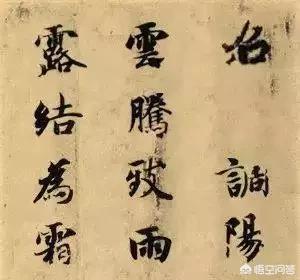 調陽
雲騰致雨
露結為霜
悟空问答